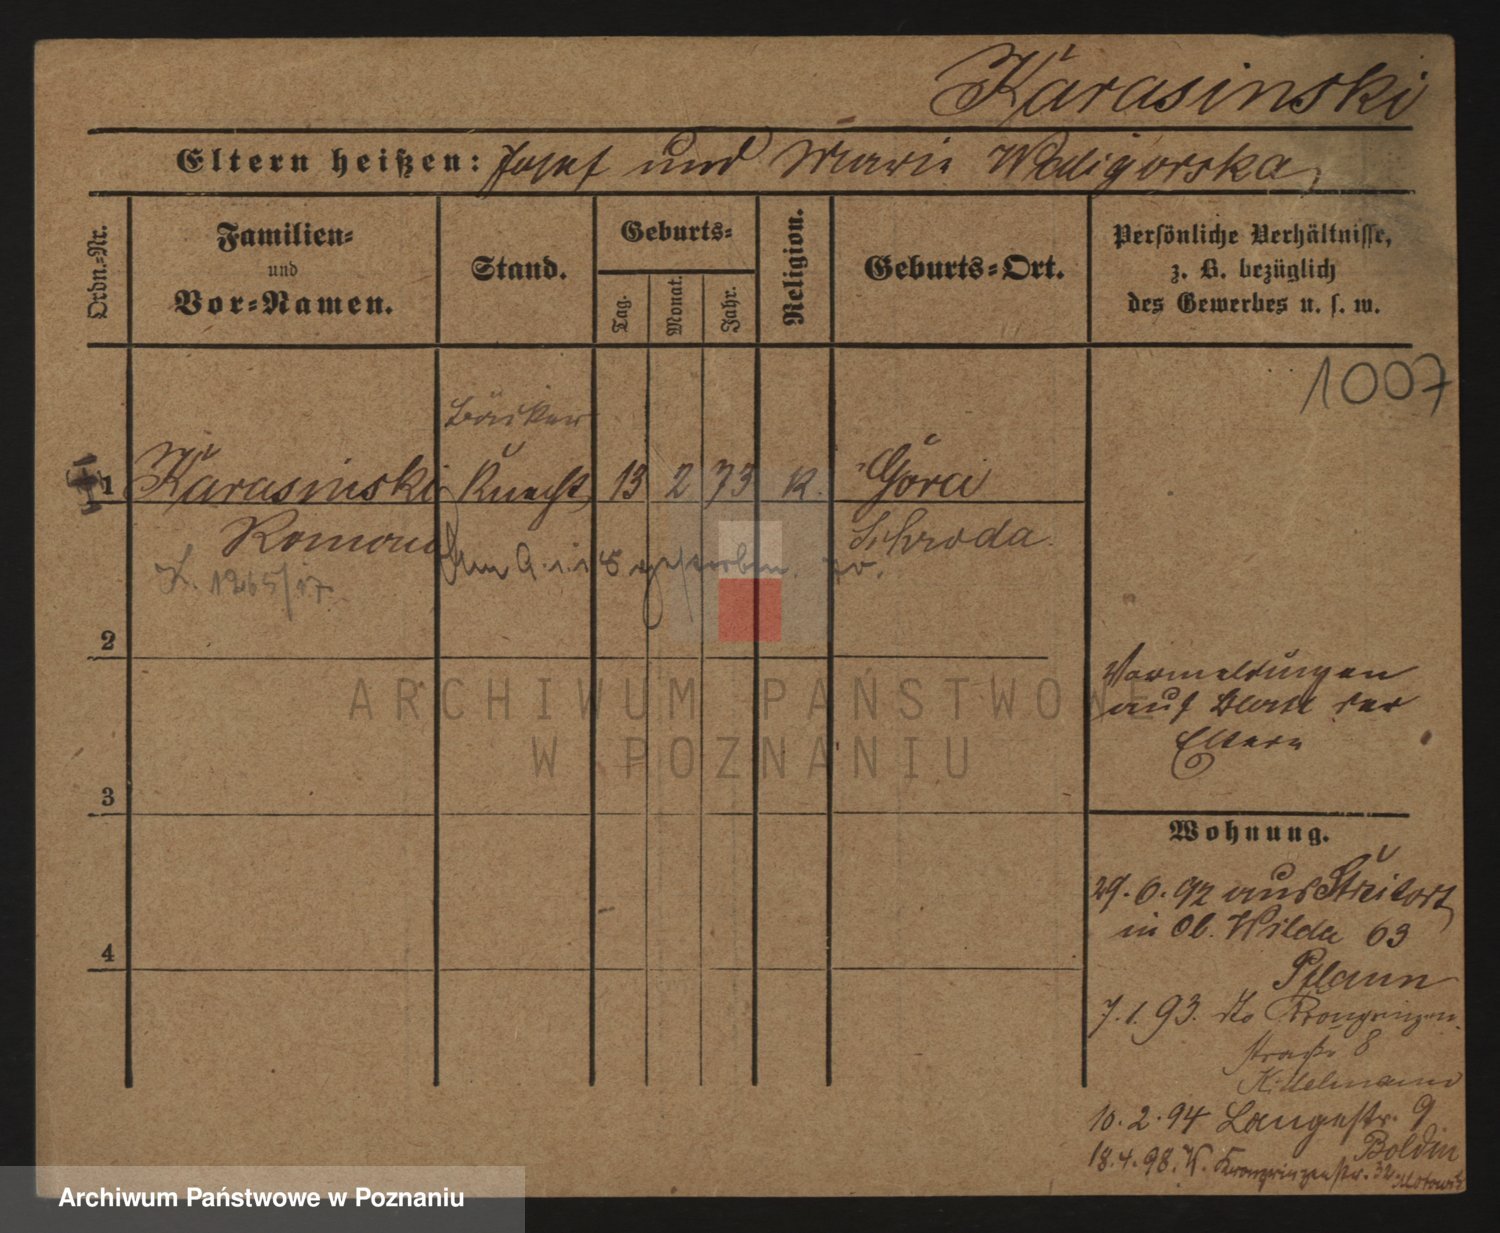 Karasinski
Eltern heißen: Josef und Marie Waligorska
Ordn.=Nr.
Familien=
und
Vor=Namen.
Stand.
Geburts=
Tag.
Monat.
Jahr.
Religion.
Geburts=Ort.
Persönliche Verhältnisse,
z. B. bezüglich
des Gewerbes u. s. w.
1007
Bäcker
1 Karasinski Knecht 13 2 73 k. Góra
Roman Schroda
gestorben.
2
Vormeldungen
auf Blatt der
Eltern
3
Wohnung.
29. 6. 92 aus Streitort
in Ob. Wilda 63
Pflaum
4
7. 1. 93. Kronprinzen
straße 8
10. 2. 94 Langestr. 9
Boldin
18. 4. 98. W. Kronprinzenstr. 32
ARCHIWUM PAŃSTWOWE
W POZNANIU
Archiwum Państwowe w Poznaniu